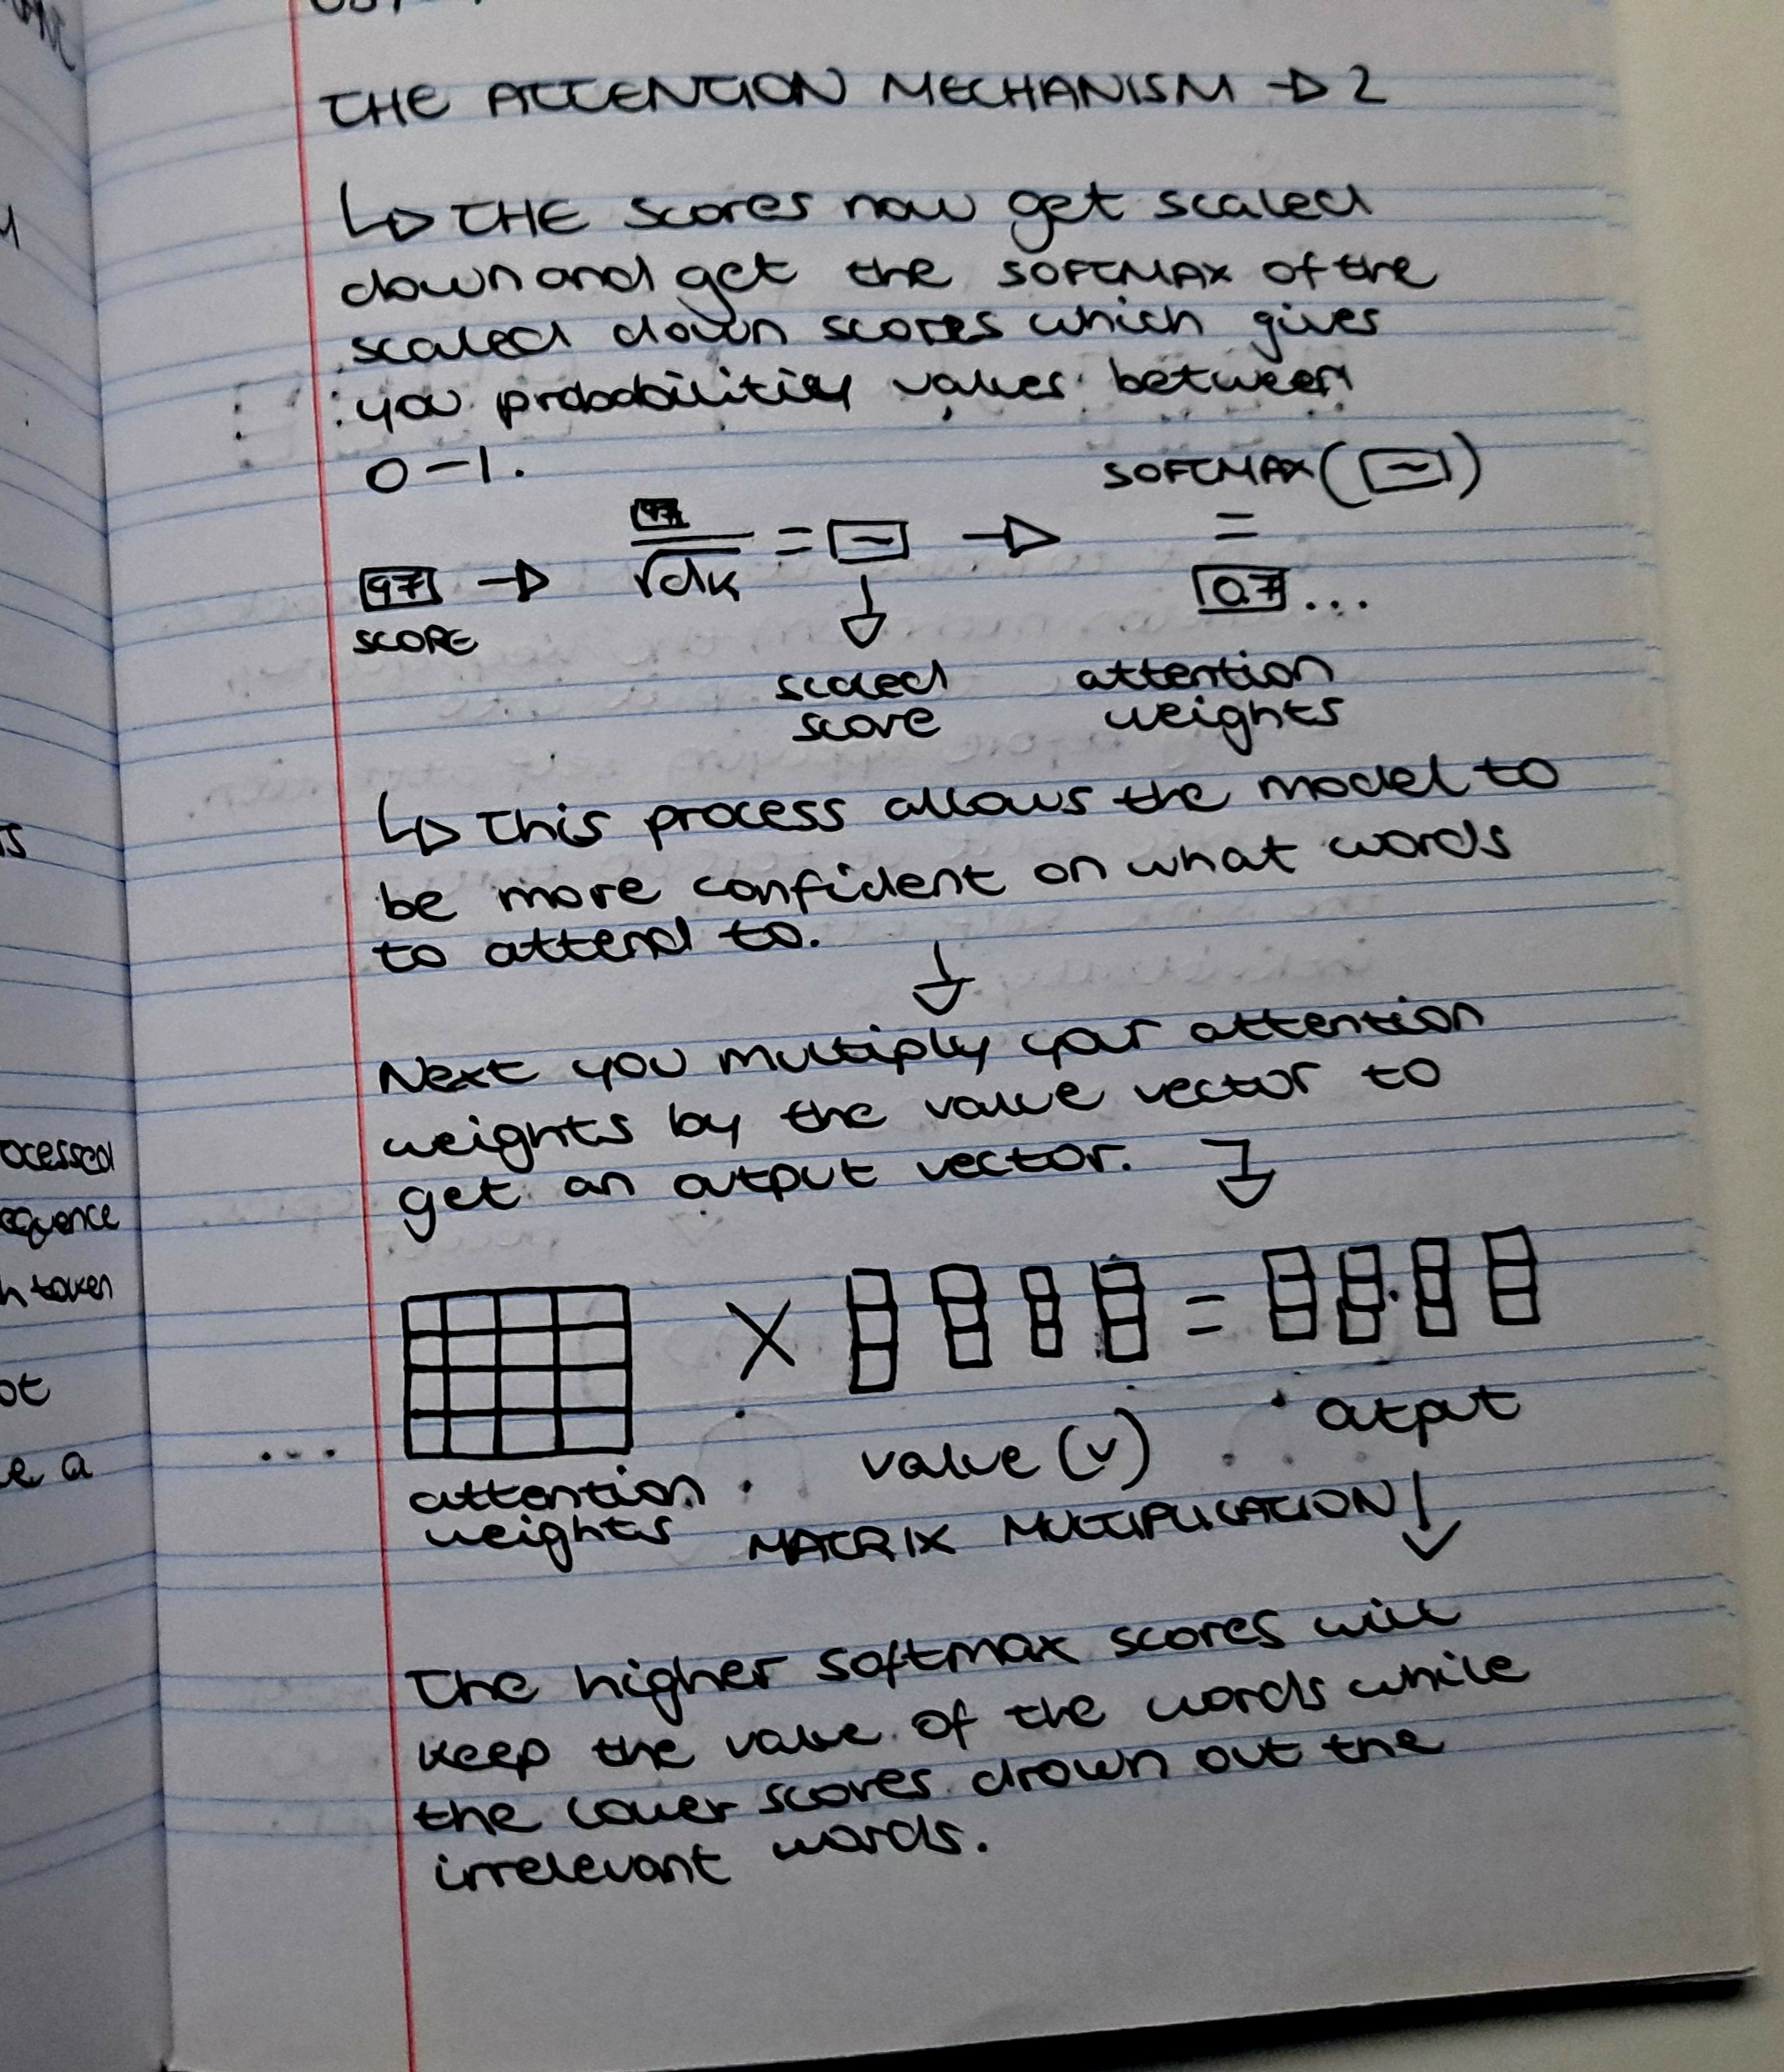 THE ATTENTION MECHANISM → 2
↳ THE scores now get scaled
down and get the SOFTMAX of the
scaled down scores which gives
you probabilities values between
0-1.
SOFTMAX(~)
97 → 97/√dk = ~ → =
0.7...
SCORE
scaled attention
score weights
↳ This process allows the model to
be more confident on what words
to attend to.
↓
Next you multiply your attention
weights by the value vector to
get an output vector. ↓
X =
value (v) output
attention
weights MATRIX MULTIPLICATION ↓
The higher softmax scores will
keep the value of the words while
the lower scores drown out the
irrelevant words.
ocessed
equence
h token
ot
e a
...